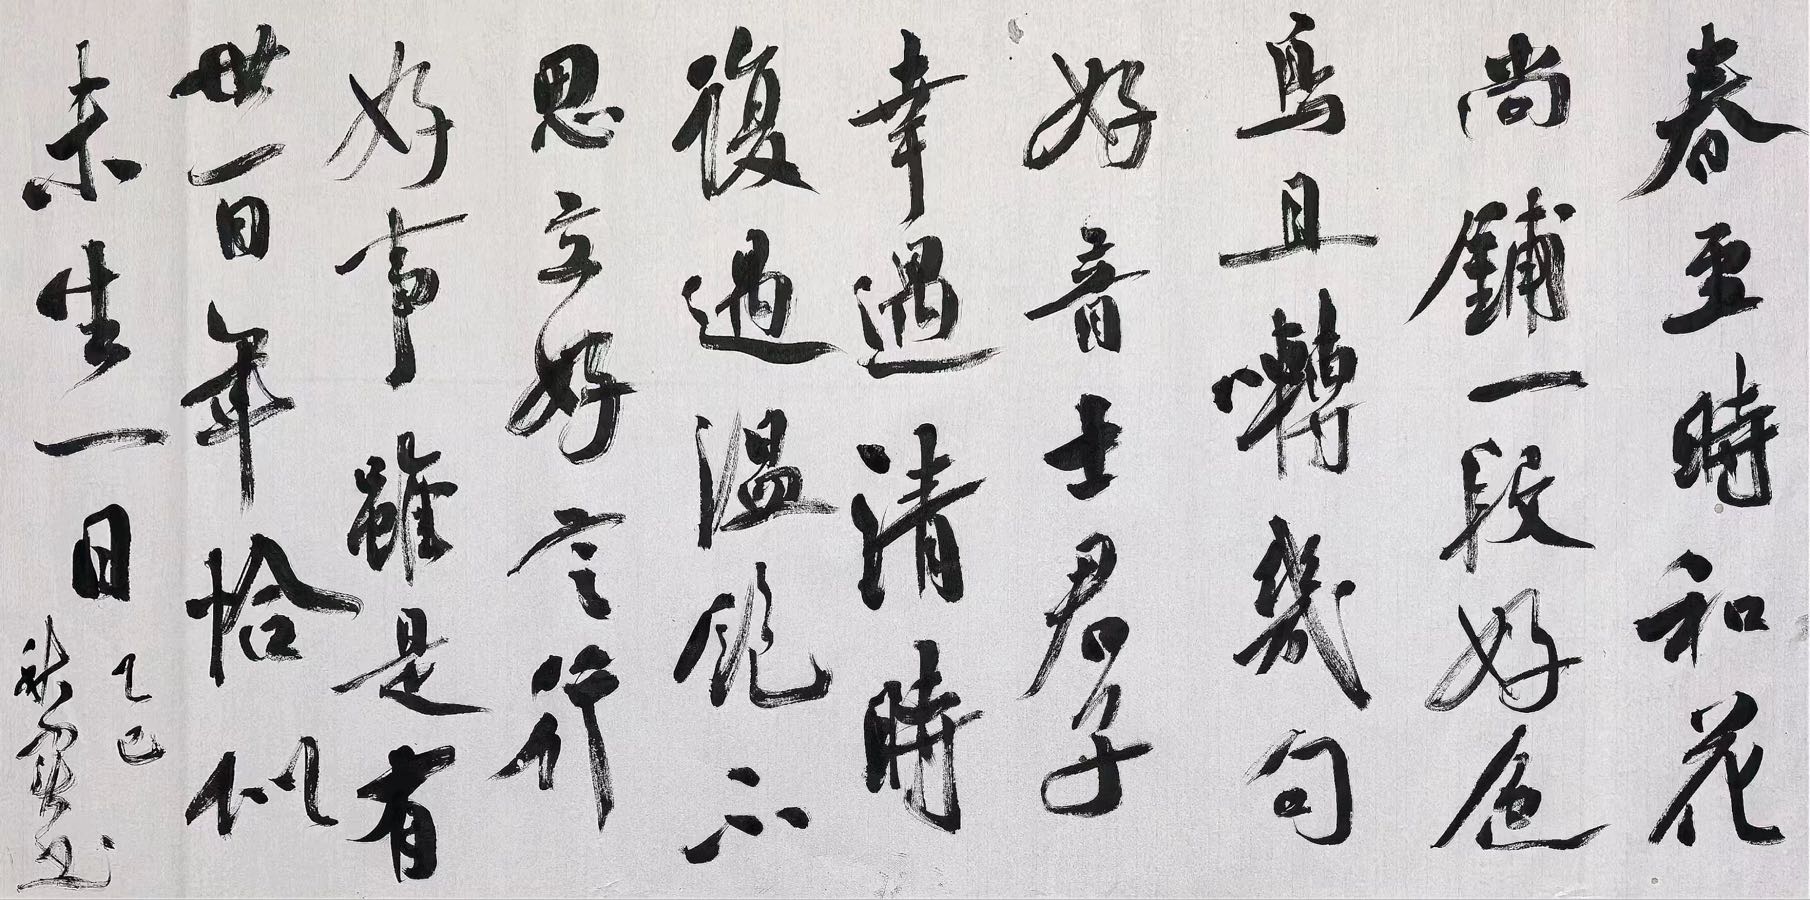 春至時和花
尚鋪一段好色
鳥且囀幾句
好音士君子
幸遇清時
復遇溫飽不
思立好言行
好事雖是有
世百年恰似
未生一日
乙巳
秋